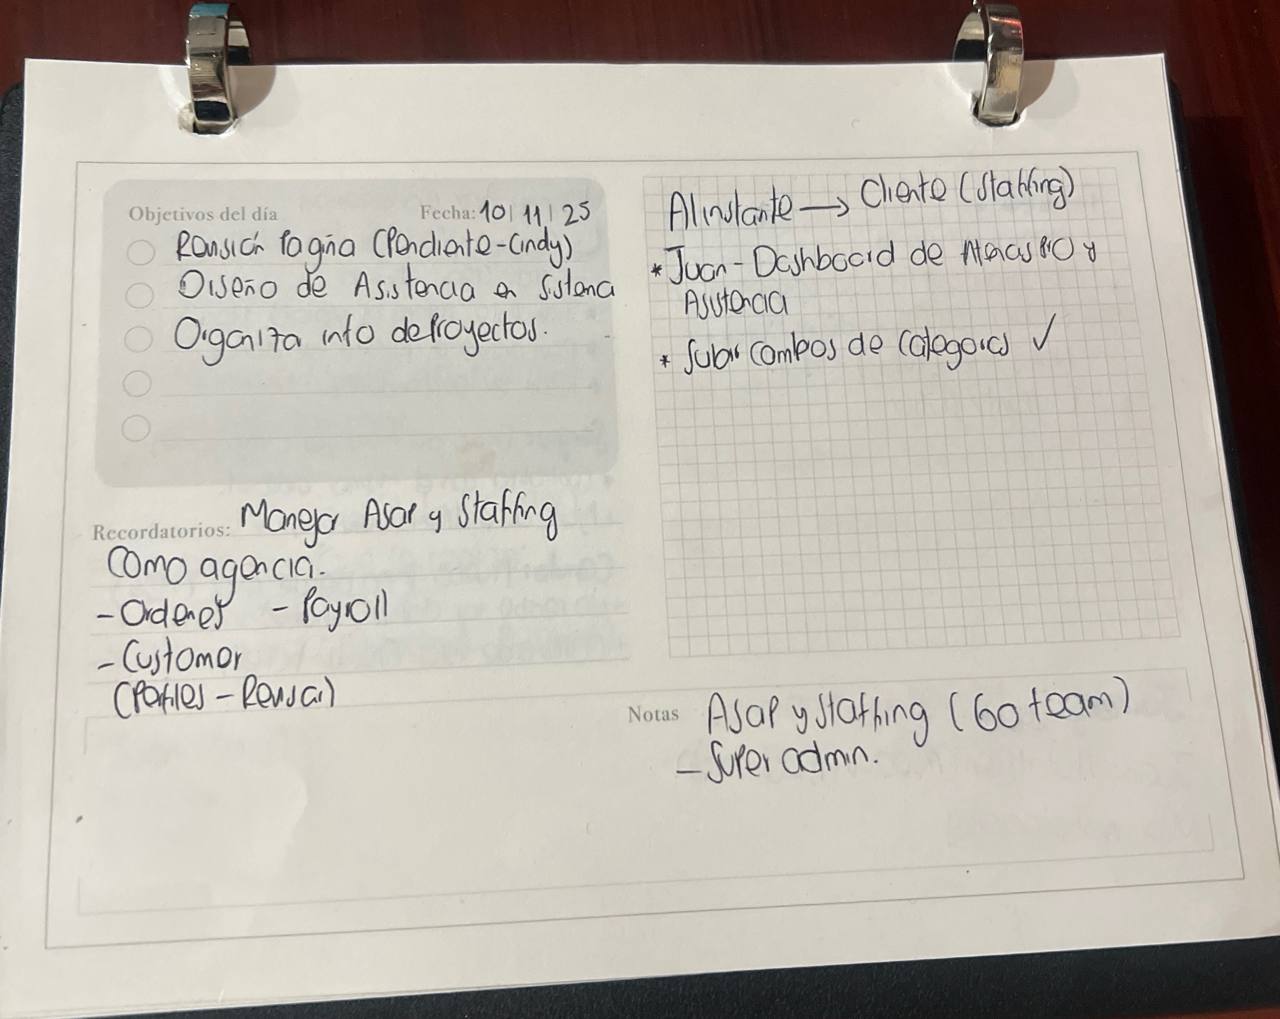 Objetivos del día
Fecha: 10 | 11 | 25
Revisión Pagina (Pendiente-Cindy)
Diseño de Asistencia en Sistema
Organiza info de Proyectos.
Recordatorios: Manejar Asap y Staffing
Como agencia.
- Ordenes - Payroll
- Customer
(Perfiles - Revisar)
Al instante → Cliente (Staffing)
* Juan - Dashboard de y
Asistencia
* Subir combos de Categorias ✓
Notas Asap y Staffing (Go team)
- Super admin.